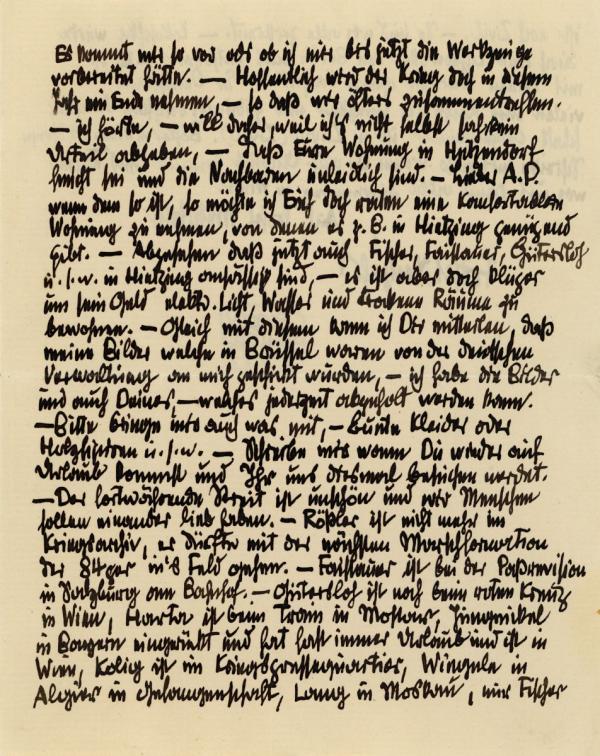 Es kommt mir so vor als ob ich mir bis jetzt die Werkzeuge
vorbereitet hätte. — Hoffentlich wird der Krieg doch in diesem
Jahr ein Ende nehmen, — so daß wir öfters zusammentreffen.
— ich hörte, — will daher, weil ich's nicht selbst sah kein
Urteil abgeben, — daß Eure Wohnung in Hetzendorf
feucht sei und die Nachbaren unleidlich sind. — Lieber A.P.
wenn dem so ist, so möchte ich Euch doch raten eine komfortablere
Wohnung zu nehmen, von denen es z. B. in Hietzing genügend
gibt. — Abgesehen daß jetzt auch Fischer, Faistauer, Gütersloh
u. s. w. in Hietzing ansässig sind, — es ist aber doch klüger
um sein Geld elektr. Licht, Wasser und trockene Räume zu
bewohnen. — Gleich mit diesem kann ich Dir mitteilen, daß
meine Bilder welche in Brüssel waren von der deutschen
Verwaltung an mich geschickt wurden, — ich habe die Bilder
und auch Deines, — welches jederzeit abgeholt werden kann.
— Bitte bringe mir auch was mit, — Bunte Kleider oder
Holzfiguren u. s. w. — Schreibe mir wann Du wieder auf
Urlaub kommst und Ihr uns diesmal besuchen werdet.
— Der fortwährende Streit ist unschön und wir Menschen
sollen einander lieb haben. — Rößler ist nicht mehr im
Kriegsarchiv, er dürfte mit der nächsten Marschformation
der 84ger in's Feld gehen. — Faistauer ist bei der Paßrevision
in Salzburg am Bahnhof. — Gütersloh ist noch beim roten Kreuz
in Wien, Harta ist beim Train in Mostar, Jungnickel
in Bozen eingerückt und hat fast immer Urlaub und ist in
Wien, Kolig ist im Kriegspressequartier, Wiegele in
Algier in Gefangenschaft, Lang in Moskau, nur Fischer